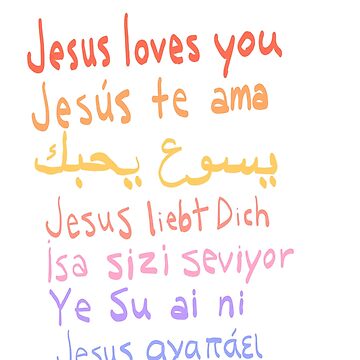 Jesus loves you
Jesús te ama
يسوع يحبك
Jesus liebt Dich
İsa sizi seviyor
Ye Su ai ni
Jesus αγαπάει